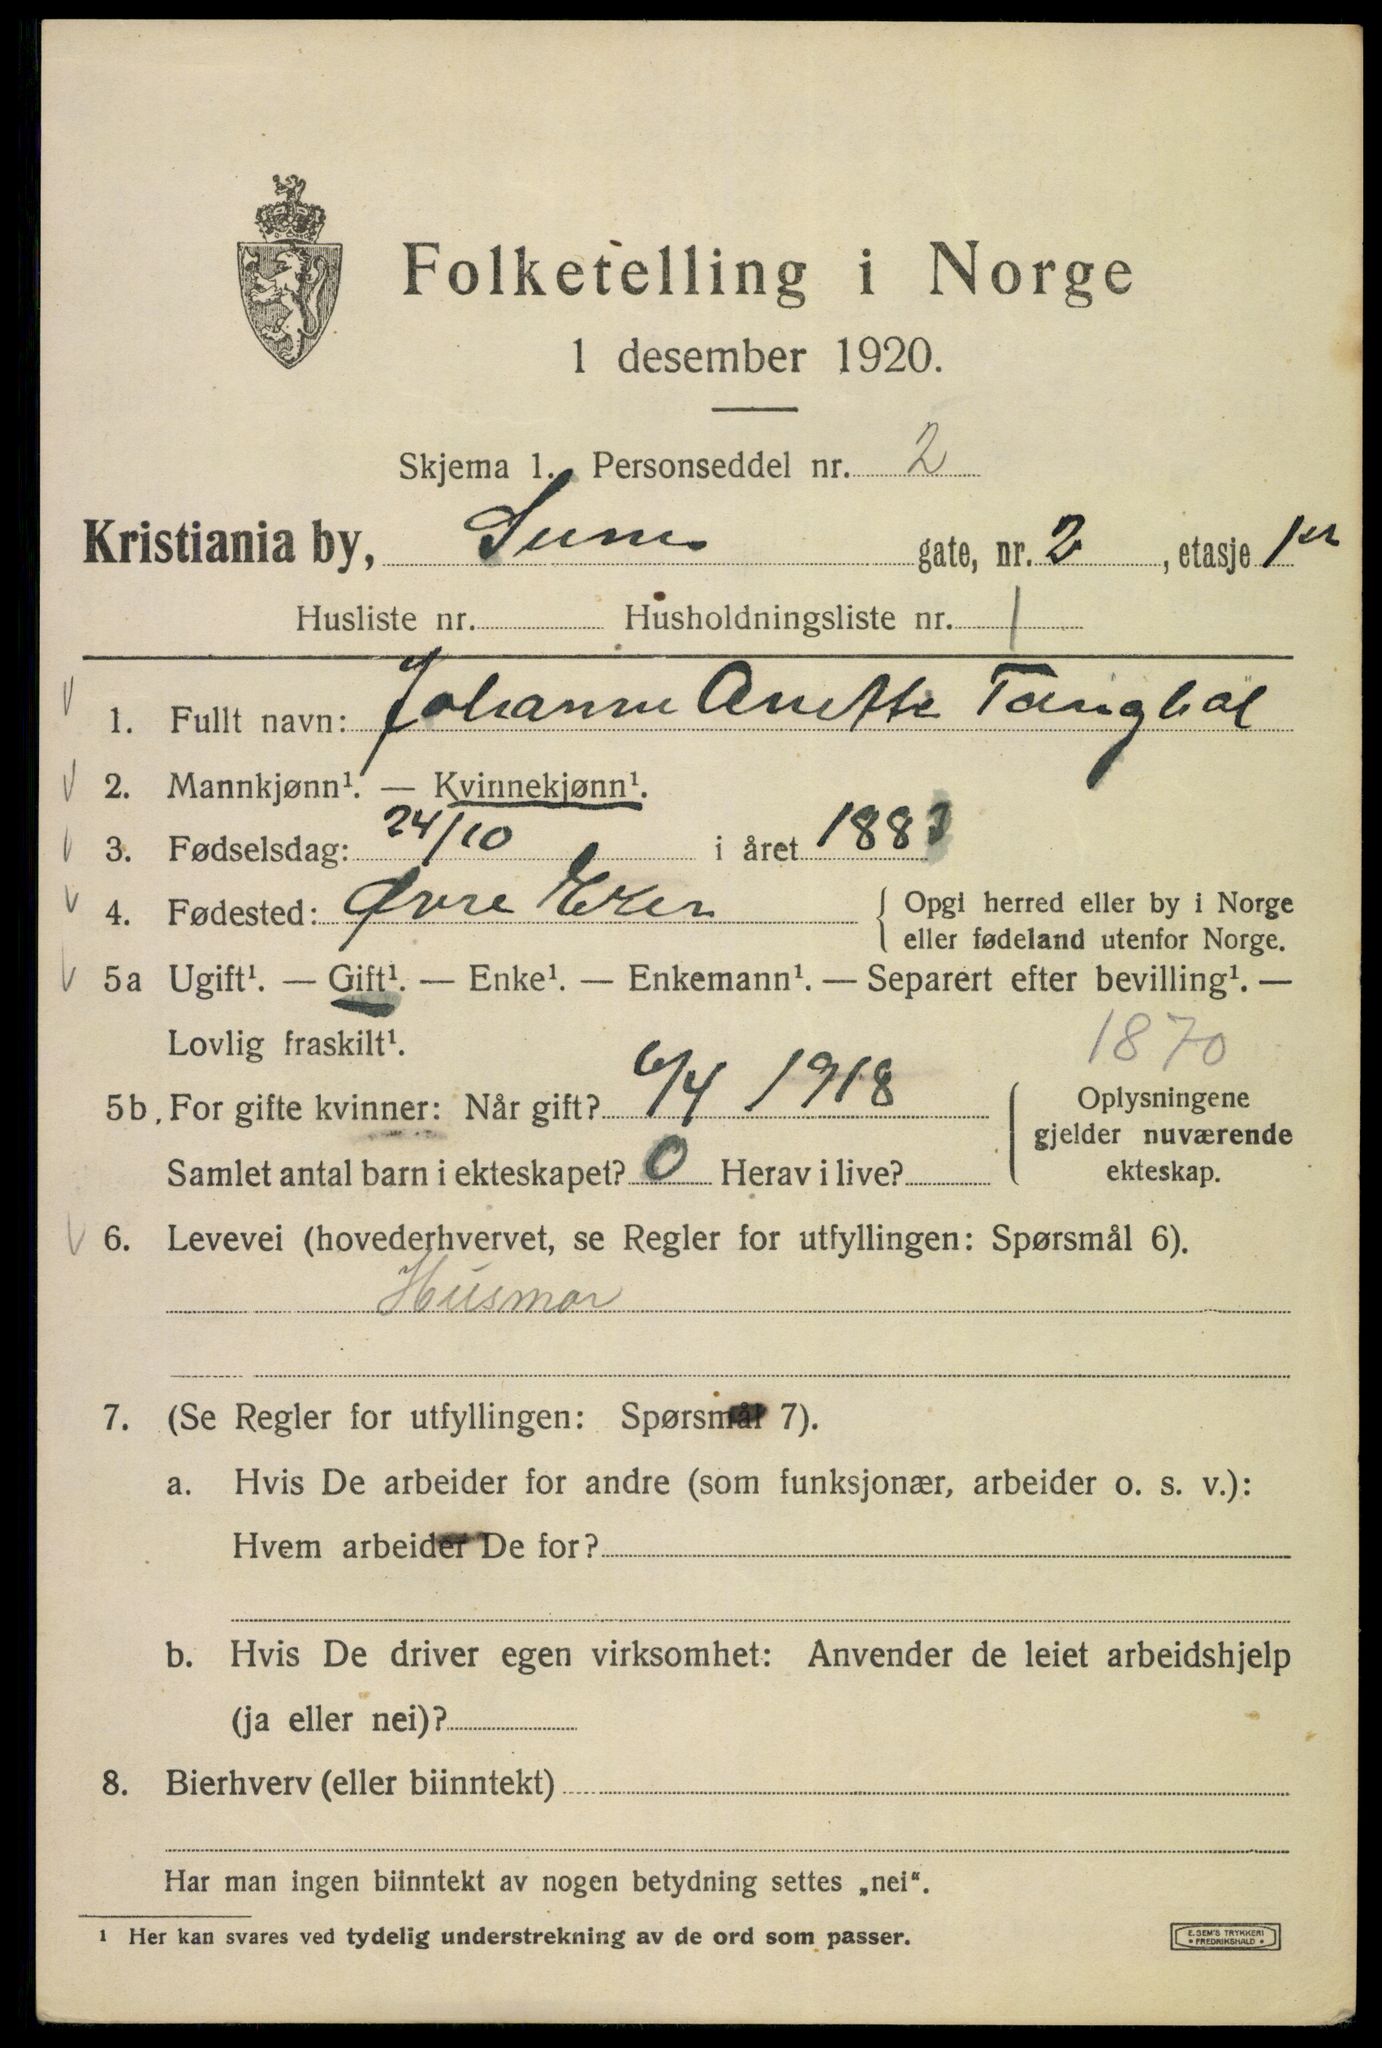 Folketelling i Norge
1 desember 1920.
Skjema 1. Personseddel nr. 2
Kristiania by, Sums gate, nr. 2, etasje 1ste
Husliste nr. Husholdningsliste nr. 1
1. Fullt navn: Johanne Anette
2. Mannkjønn¹. — Kvinnekjønn¹.
3. Fødselsdag: 24/10 i året 1883
4. Fødested: Øvre Eker { Opgi herred eller by i Norge
eller fødeland utenfor Norge.
5a Ugift¹. — Gift¹. — Enke¹. — Enkemann¹. — Separert efter bevilling¹. —
Lovlig fraskilt¹.
1870
5b, For gifte kvinner: Når gift? 6/4 1918
Samlet antal barn i ekteskapet? 0 Herav i live?
Oplysningene
gjelder nuværende
ekteskap.
6. Levevei (hovederhvervet, se Regler for utfyllingen: Spørsmål 6).
Husmor
7. (Se Regler for utfyllingen: Spørsmål 7).
a. Hvis De arbeider for andre (som funksjonær, arbeider o. s. v.):
Hvem arbeider De for?
b. Hvis De driver egen virksomhet: Anvender de leiet arbeidshjelp
(ja eller nei)?
8. Bierhverv (eller biinntekt)
Har man ingen biinntekt av nogen betydning settes „nei“.
¹ Her kan svares ved tydelig understrekning av de ord som passer.
E. SEM'S TRYKKERI
• FREDRIKSHALD •